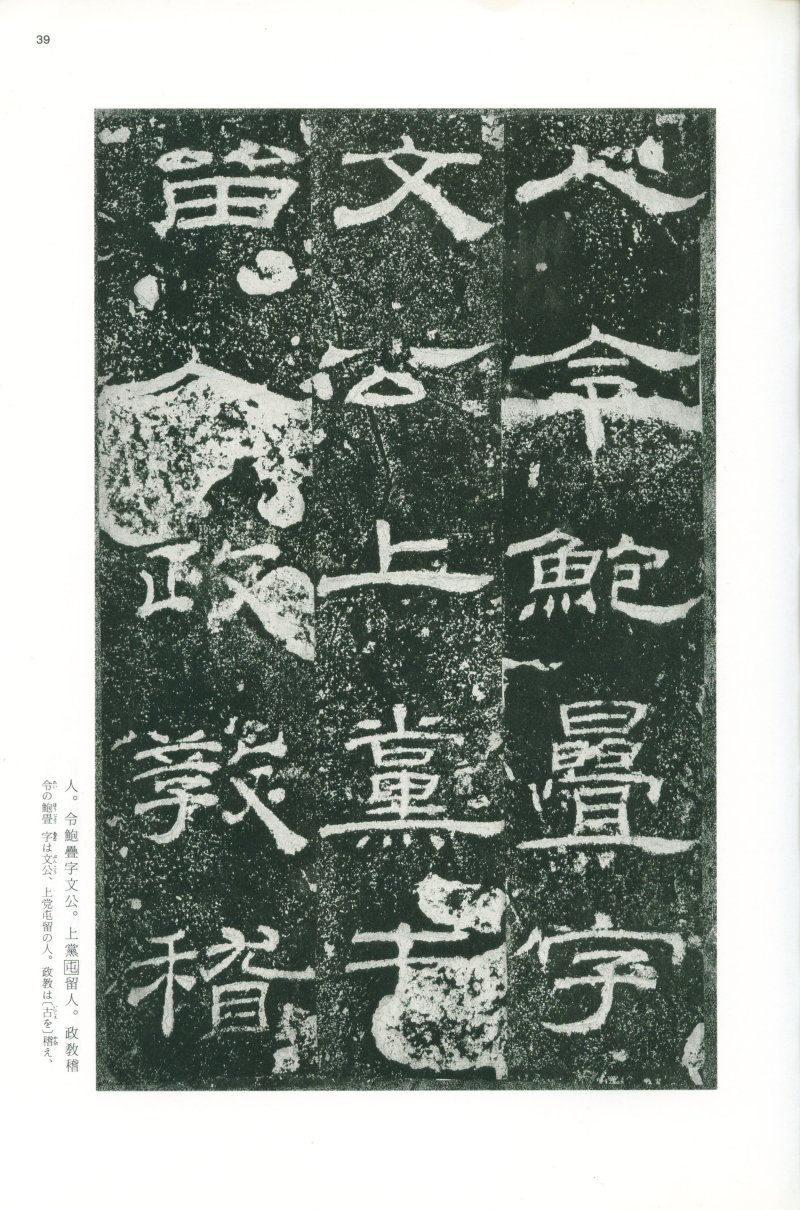 39
人令鮑疊字
文公上黨屯
留人政敎稽
人。令鮑疊字文公。上黨屯留人。政敎稽
令の鮑畳 字は文公、上党屯留の人。政教は〔古を〕稽え、